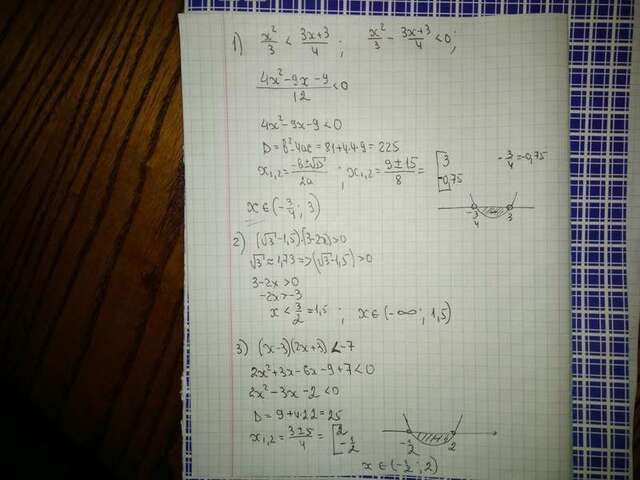 1) x²/3 < (3x+3)/4 ; x²/3 - (3x+3)/4 < 0;
(4x²-9x-9)/12 < 0
4x²-9x-9<0
D=b²-4ac=81+4·4·9=225
x₁,₂=(-b±√D)/2a ; x₁,₂=(9±15)/8= [3 -0,75 -3/4=-0,75
x∈(-3/4; 3) -3/4 3
2) (√3-1,5)·(3-2x)>0
√3≈1,73=>(√3-1,5)>0
3-2x>0
-2x>-3
x<3/2=1,5 ; x∈(-∞; 1,5)
3) (x-3)(2x+3)<-7
2x²+3x-6x-9+7<0
2x²-3x-2<0
D=9+4·2·2=25
x₁,₂=(3±5)/4= [2 -1/2 -1/2 2
x∈(-1/2; 2)